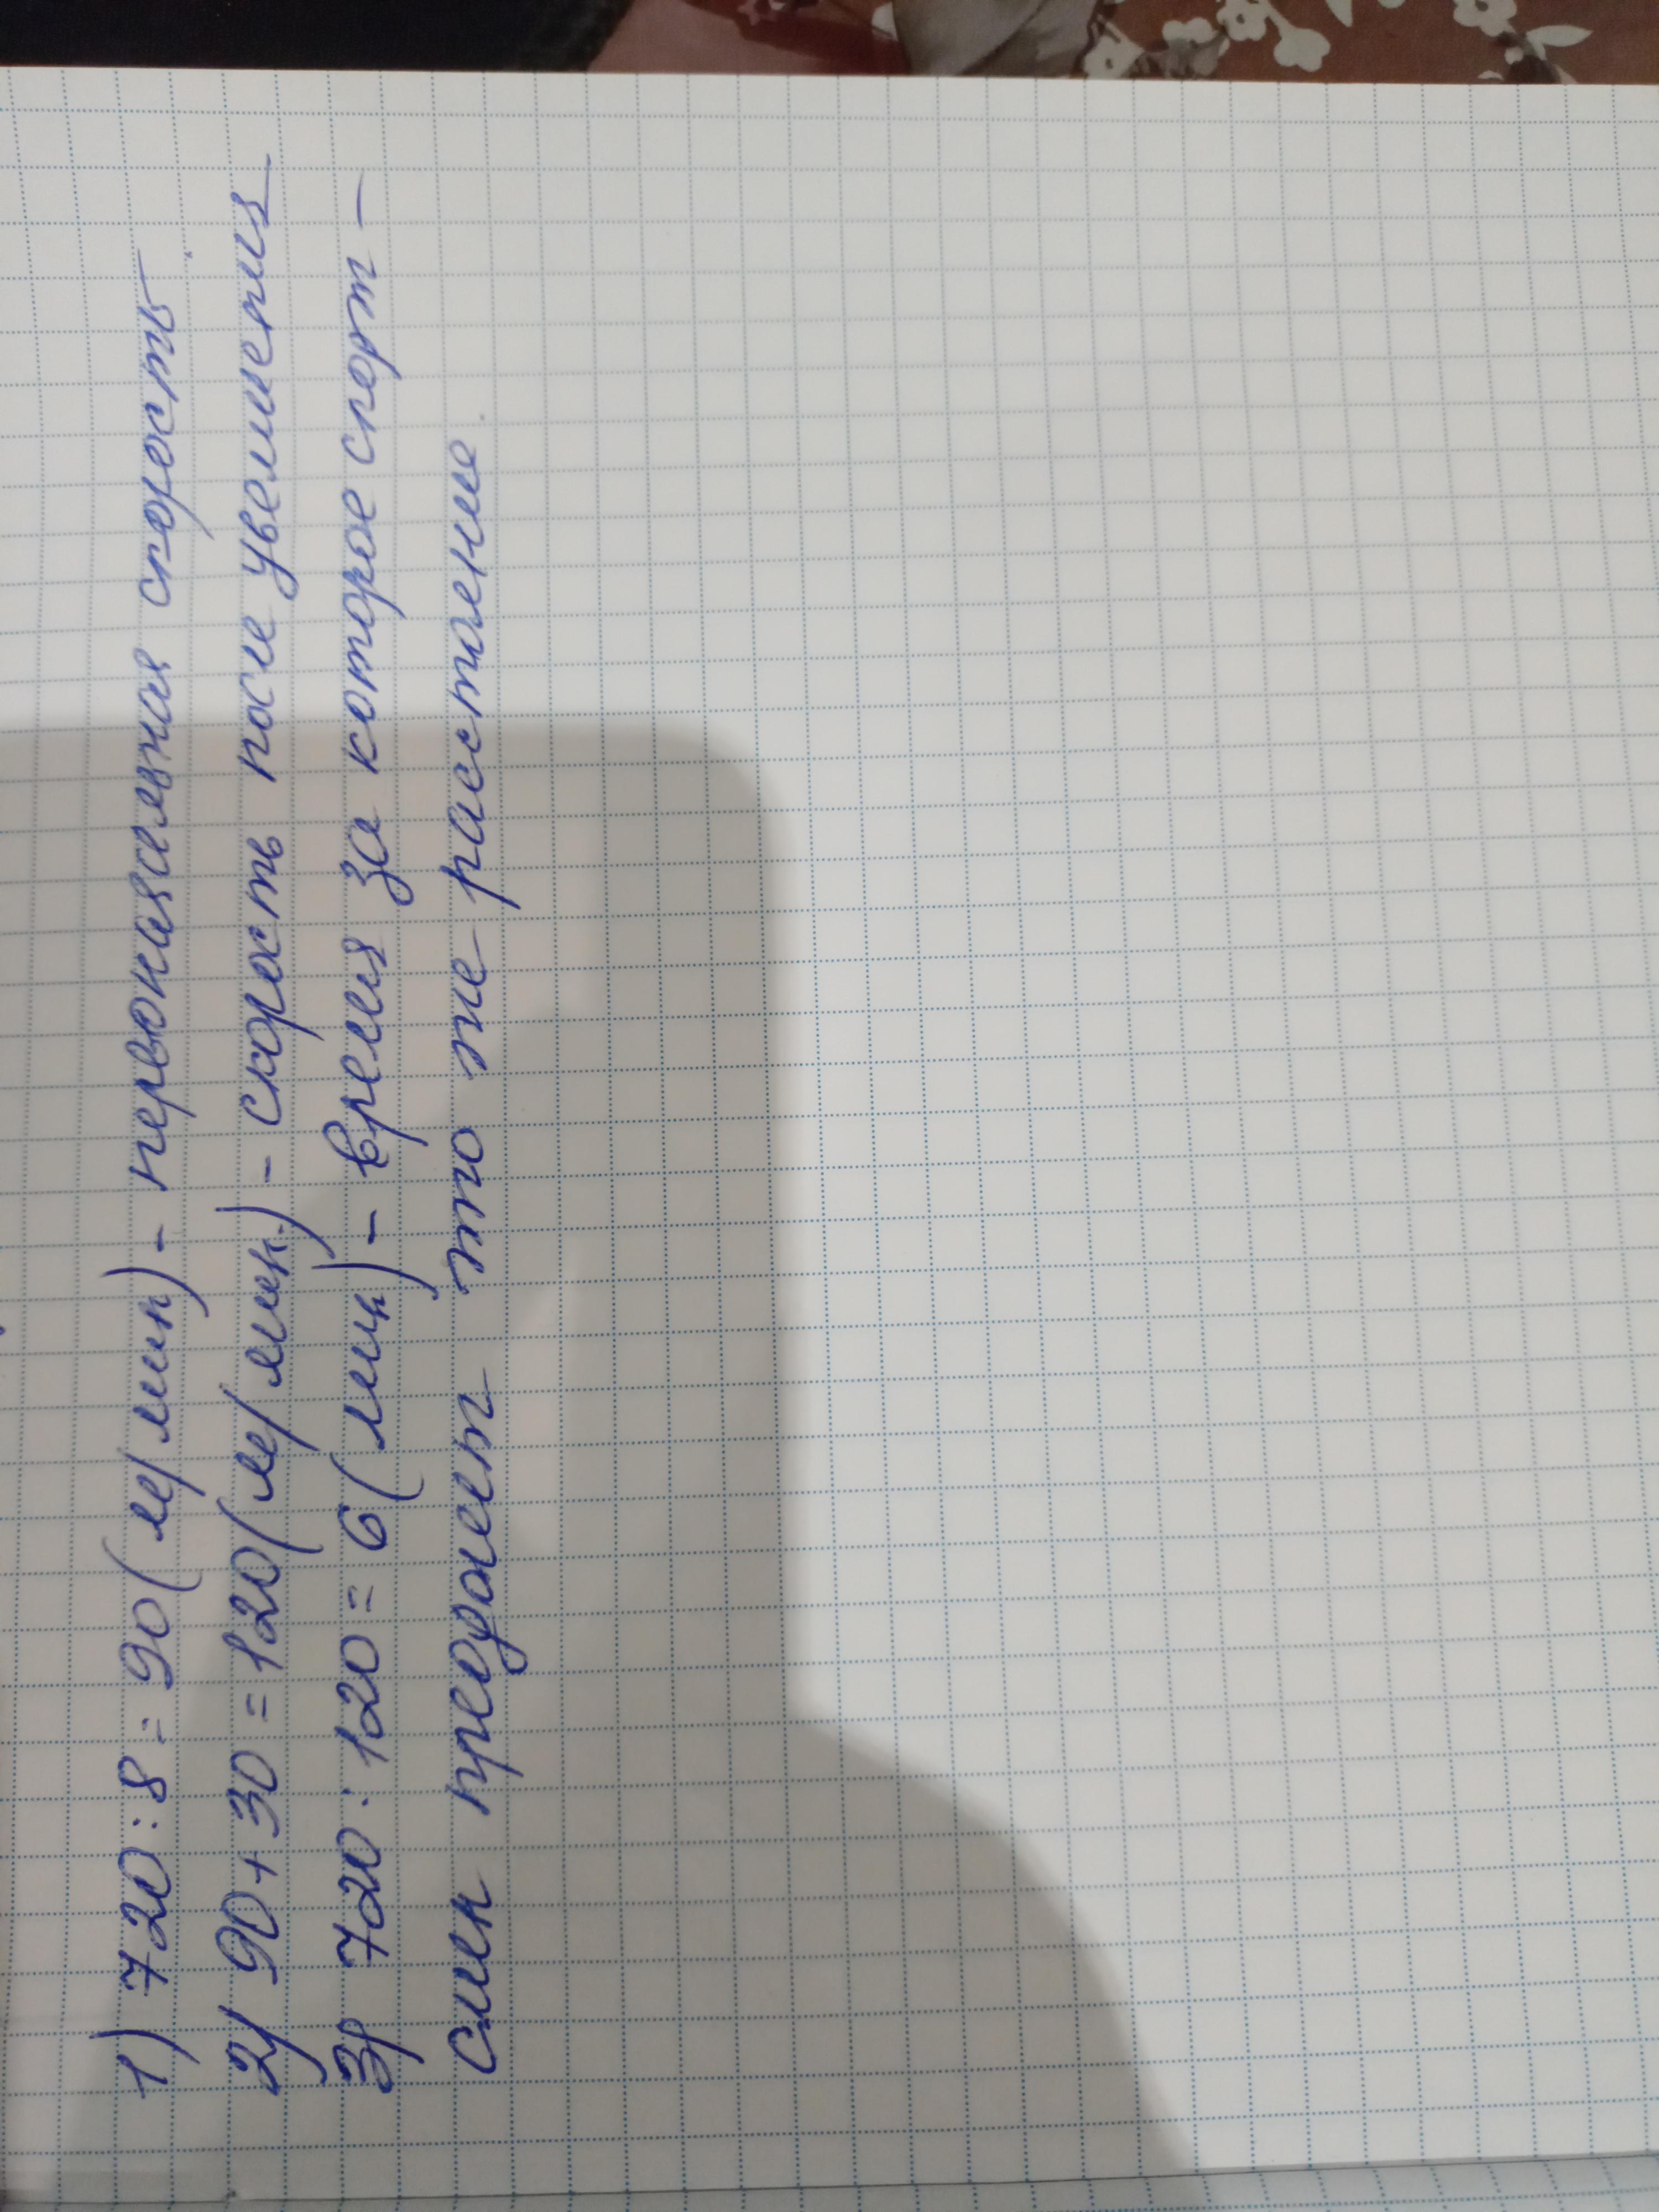 1) 720:8=90(м/мин)- первоначальная скорость
2) 90+30=120(м/мин.)- скорость после увеличения
3) 720:120=6(мин)- время за которое спорт-
смен преодолеет то же расстояние.